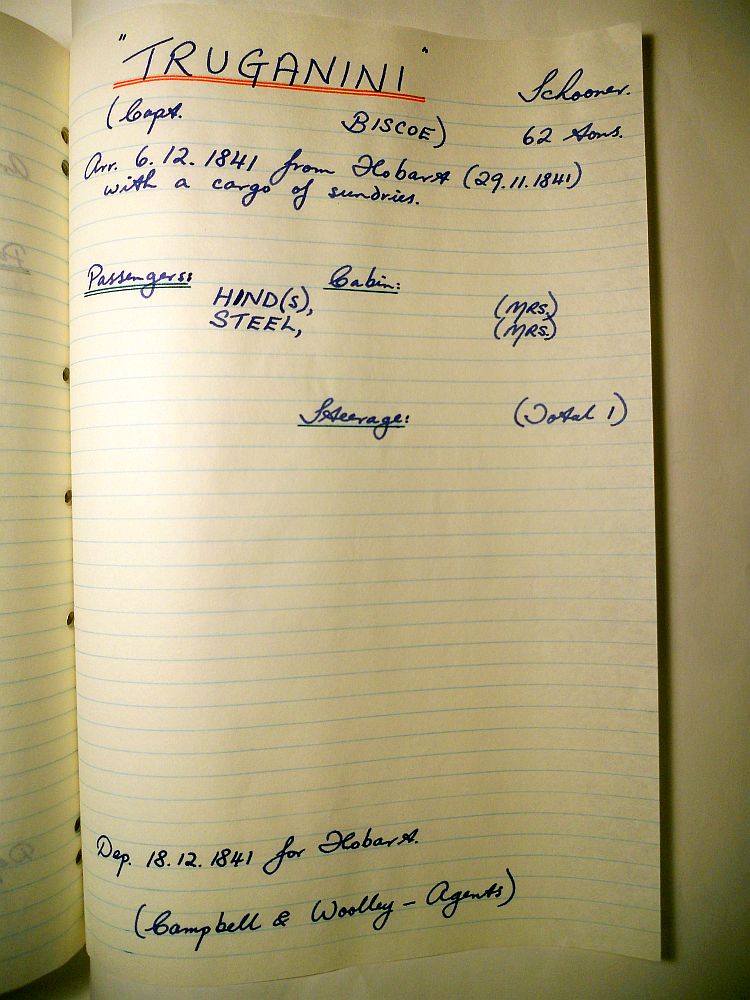 "TRUGANINI" Schooner.
(Capt. BISCOE) 62 tons.
Arr. 6.12.1841 from Hobart (29.11.1841)
with a cargo of sundries.
Passengers: Cabin:
HIND(S), (MRS.)
STEEL, (MRS.)
Steerage: (Total 1)
Dep. 18.12.1841 for Hobart.
(Campbell & Woolley - Agents)